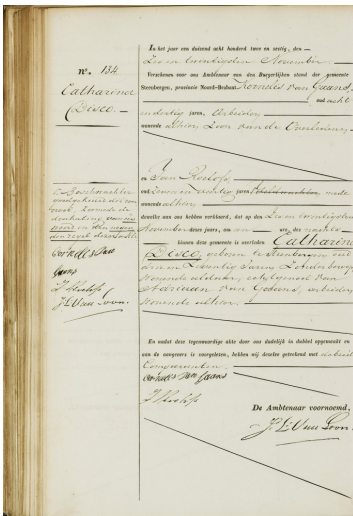 N°. 134
Catharina
Disco. —
In het jaar een duizend acht honderd twee en zestig, den —
Zes en twintigsten November
Verschenen voor ons Ambtenaar van den Burgerlijken stand der gemeente
Steenbergen, provincie Noord-Braband Kornelis van Gaans,
oud acht
en dertig jaren, Arbeider
wonende alhier, Zoon van de Overledene,
en Jan Roelofs
oud twee en zestig jaren, mede
wonende alhier
dewelke aan ons hebben verklaard, dat op den Zes en twintigsten
November dezes jaars, om een ure, des nachts
binnen deze gemeente is overleden Catharina
Disco, geboren te Steenbergen, oud
wonende alhier, echtgenoot van
Adriaan van Gaans, arbeider
wonende alhier.
En nadat deze tegenwoordige akte door ons dadelijk in dubbel opgemaakt en
aan de aangevers is voorgelezen, hebben wij dezelve geteekend met
Comparanten.
Cornelis van Gaans
J Roelofs
De Ambtenaar voornoemd,
J. L. Van Loon.
Cornelis Van
Gaans
J Roelofs
J. L. Van Loon.